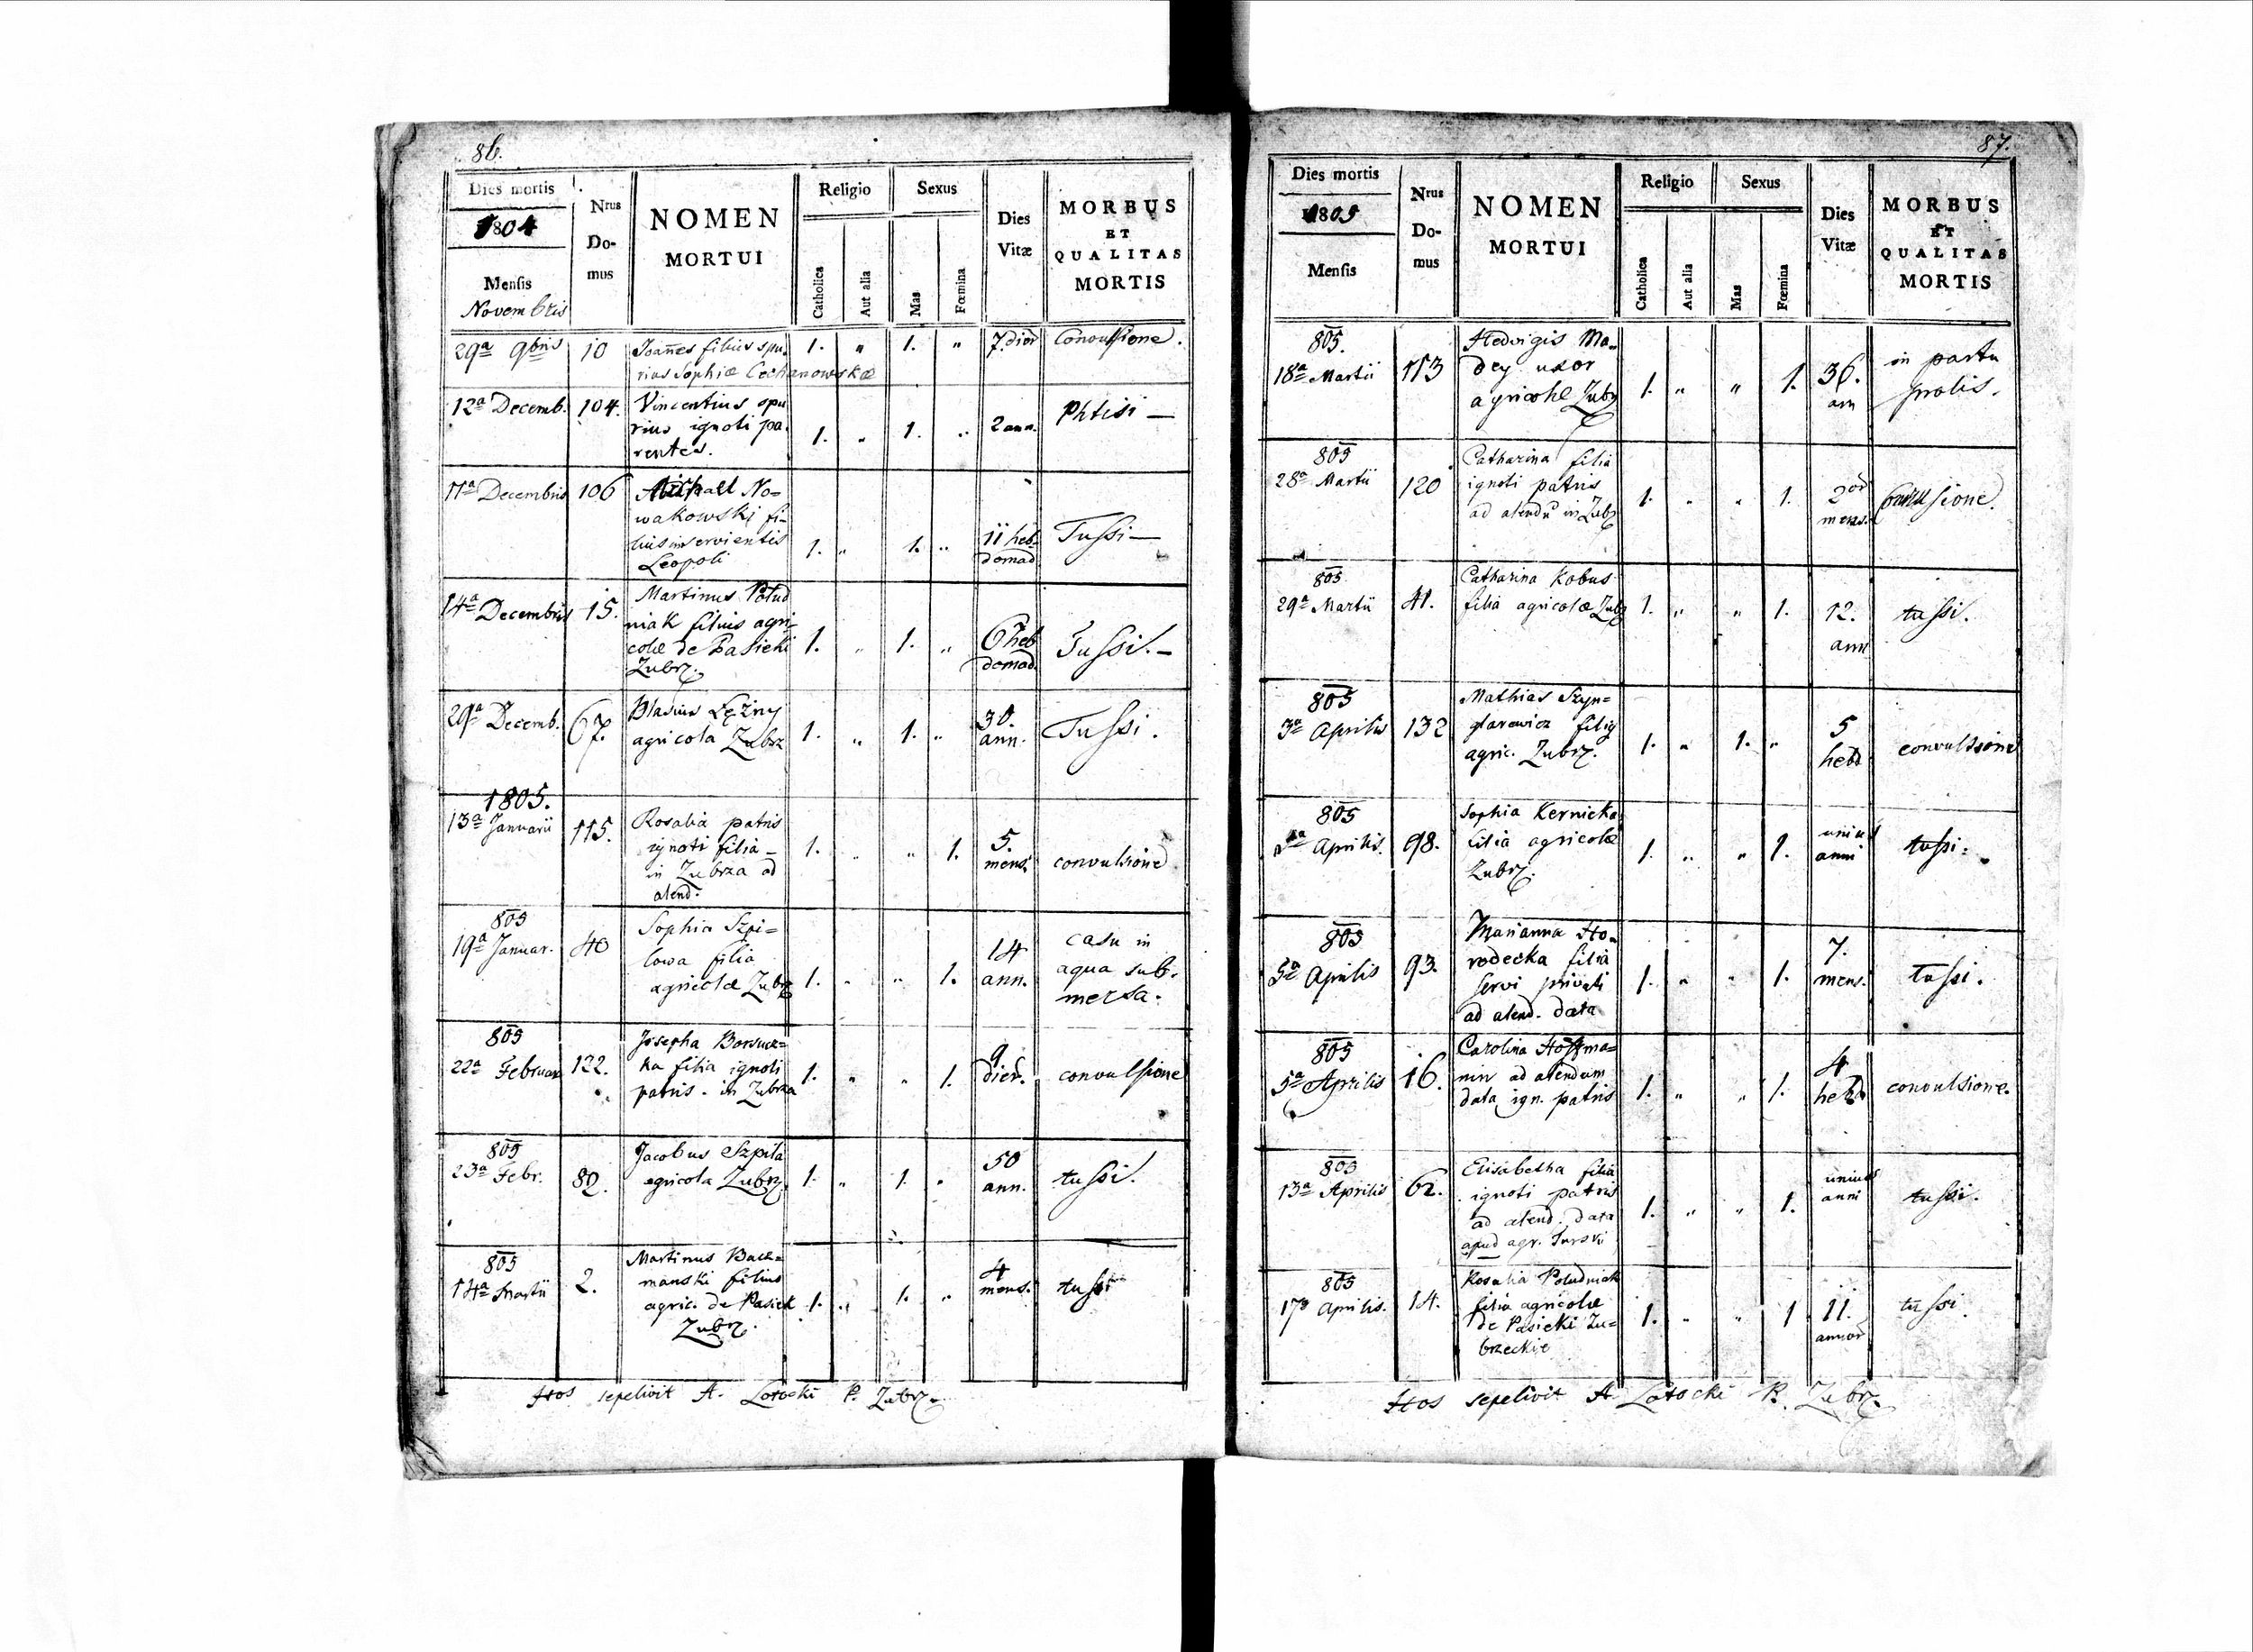 86.
Dies mortis
1804
Mensis
Novembris
Nrus
Do-
mus
NOMEN
MORTUI
Religio
Catholica
Aut alia
Sexus
Mas
Fœmina
Dies
Vitæ
MORBUS
ET
QUALITAS
MORTIS
29a 9bris 10 Joannes filius spu- 1. „ 1. „ 7. dier Convulsione.
rius Sophiæ Cechanowskæ
12a Decemb. 104. Vincentius spu
rius ignoti pa- 1. „ 1. „ 2 ann. Phtisi —
rentes.
11a Decembris 106 Michael No=
wakowski fi-
lius inservientis 1. „ 1. „ 11 heb- Tussi —
Leopoli domad
14a Decembris 15. Martinus Połud
niak filius agri-
colæ de Pasieki 1. „ 1. „ 6 heb Tussi. —
Zubrz. domad.
29a Decemb. 67. Blasius Lężny 30.
agricola Zubrz 1. „ 1. „ ann. Tussi.
1805.
13a Januarii 115. Rosalia patris
ignoti filia — 1. „ „ 1. 5.
in Zubrza ad mens. convulsione
alend.
805
19a Januar. 40 Sophia Szpi= 14 casu in
lowa filia ann. aqua sub-
agricolæ Zubrz 1. „ „ 1. mersa.
805
22a Februar 122. Josepha Borsuc= 9
ka filia ignoti 1. „ „ 1. dier. convulsione
patris. in Zubrza
805
23a Febr. 82. Jacobus Szpila 50
agricola Zubrz. 1. „ 1. „ ann. tussi.
805
14a Martii 2. Martinus Back=
manski filius 4
agric. de Pasiek 1. „ 1. „ mens. tussi
Zubrz.
Hos sepelivit A. Lotocki P. Zubrz.
87.
Dies mortis
1805
Mensis
Nrus
Do-
mus
NOMEN
MORTUI
Religio
Catholica
Aut alia
Sexus
Mas
Fœmina
Dies
Vitæ
MORBUS
ET
QUALITAS
MORTIS
805.
18a Martii 113 Hedvigis Ma- in partu
dey uxor 1. „ „ 1. 36. prolis.
agricolæ Zubrz ann
805
28a Martii 120 Catharina filia
ignoti patris 1. „ „ 1. 2or Convulsione.
ad alendu in Zubrz mens.
805
29a Martii 41. Catharina Kobus
filia agricolæ Zubrz 1. „ „ 1. 12. tussi.
ann
805
3a Aprilis 132 Mathias Szyn=
glarewicz filig 5
agric. Zubrz. 1. „ 1. „ hebd convulsione
805
Aprilis. 98. Sophia Kernicka
filia agricolæ 1. „ „ 1. unius tussi.
Zubrz. anni
805
5a Aprilis 93. Marianna Ho-
rodecka filia 7.
servi privati 1. „ „ 1. mens. tussi.
ad alend. data
805
5a Aprilis 16. Carolina Hoffma=
nin ad alendum 4
data ign. patris 1. „ „ 1. hebd convulsione.
805
13a Aprilis 62. Elisabetha filia
ignoti patris unius
ad alend. data 1. „ „ 1. anni tussi.
apud agr. Turski
805
17a Aprilis. 14. Rosalia Poludniak
filia agricolæ
de Pasieki Zu= 1. „ „ 1 11. tussi.
brzeckie annor
Hos sepelivit A. Lotocki P. Zubrz.